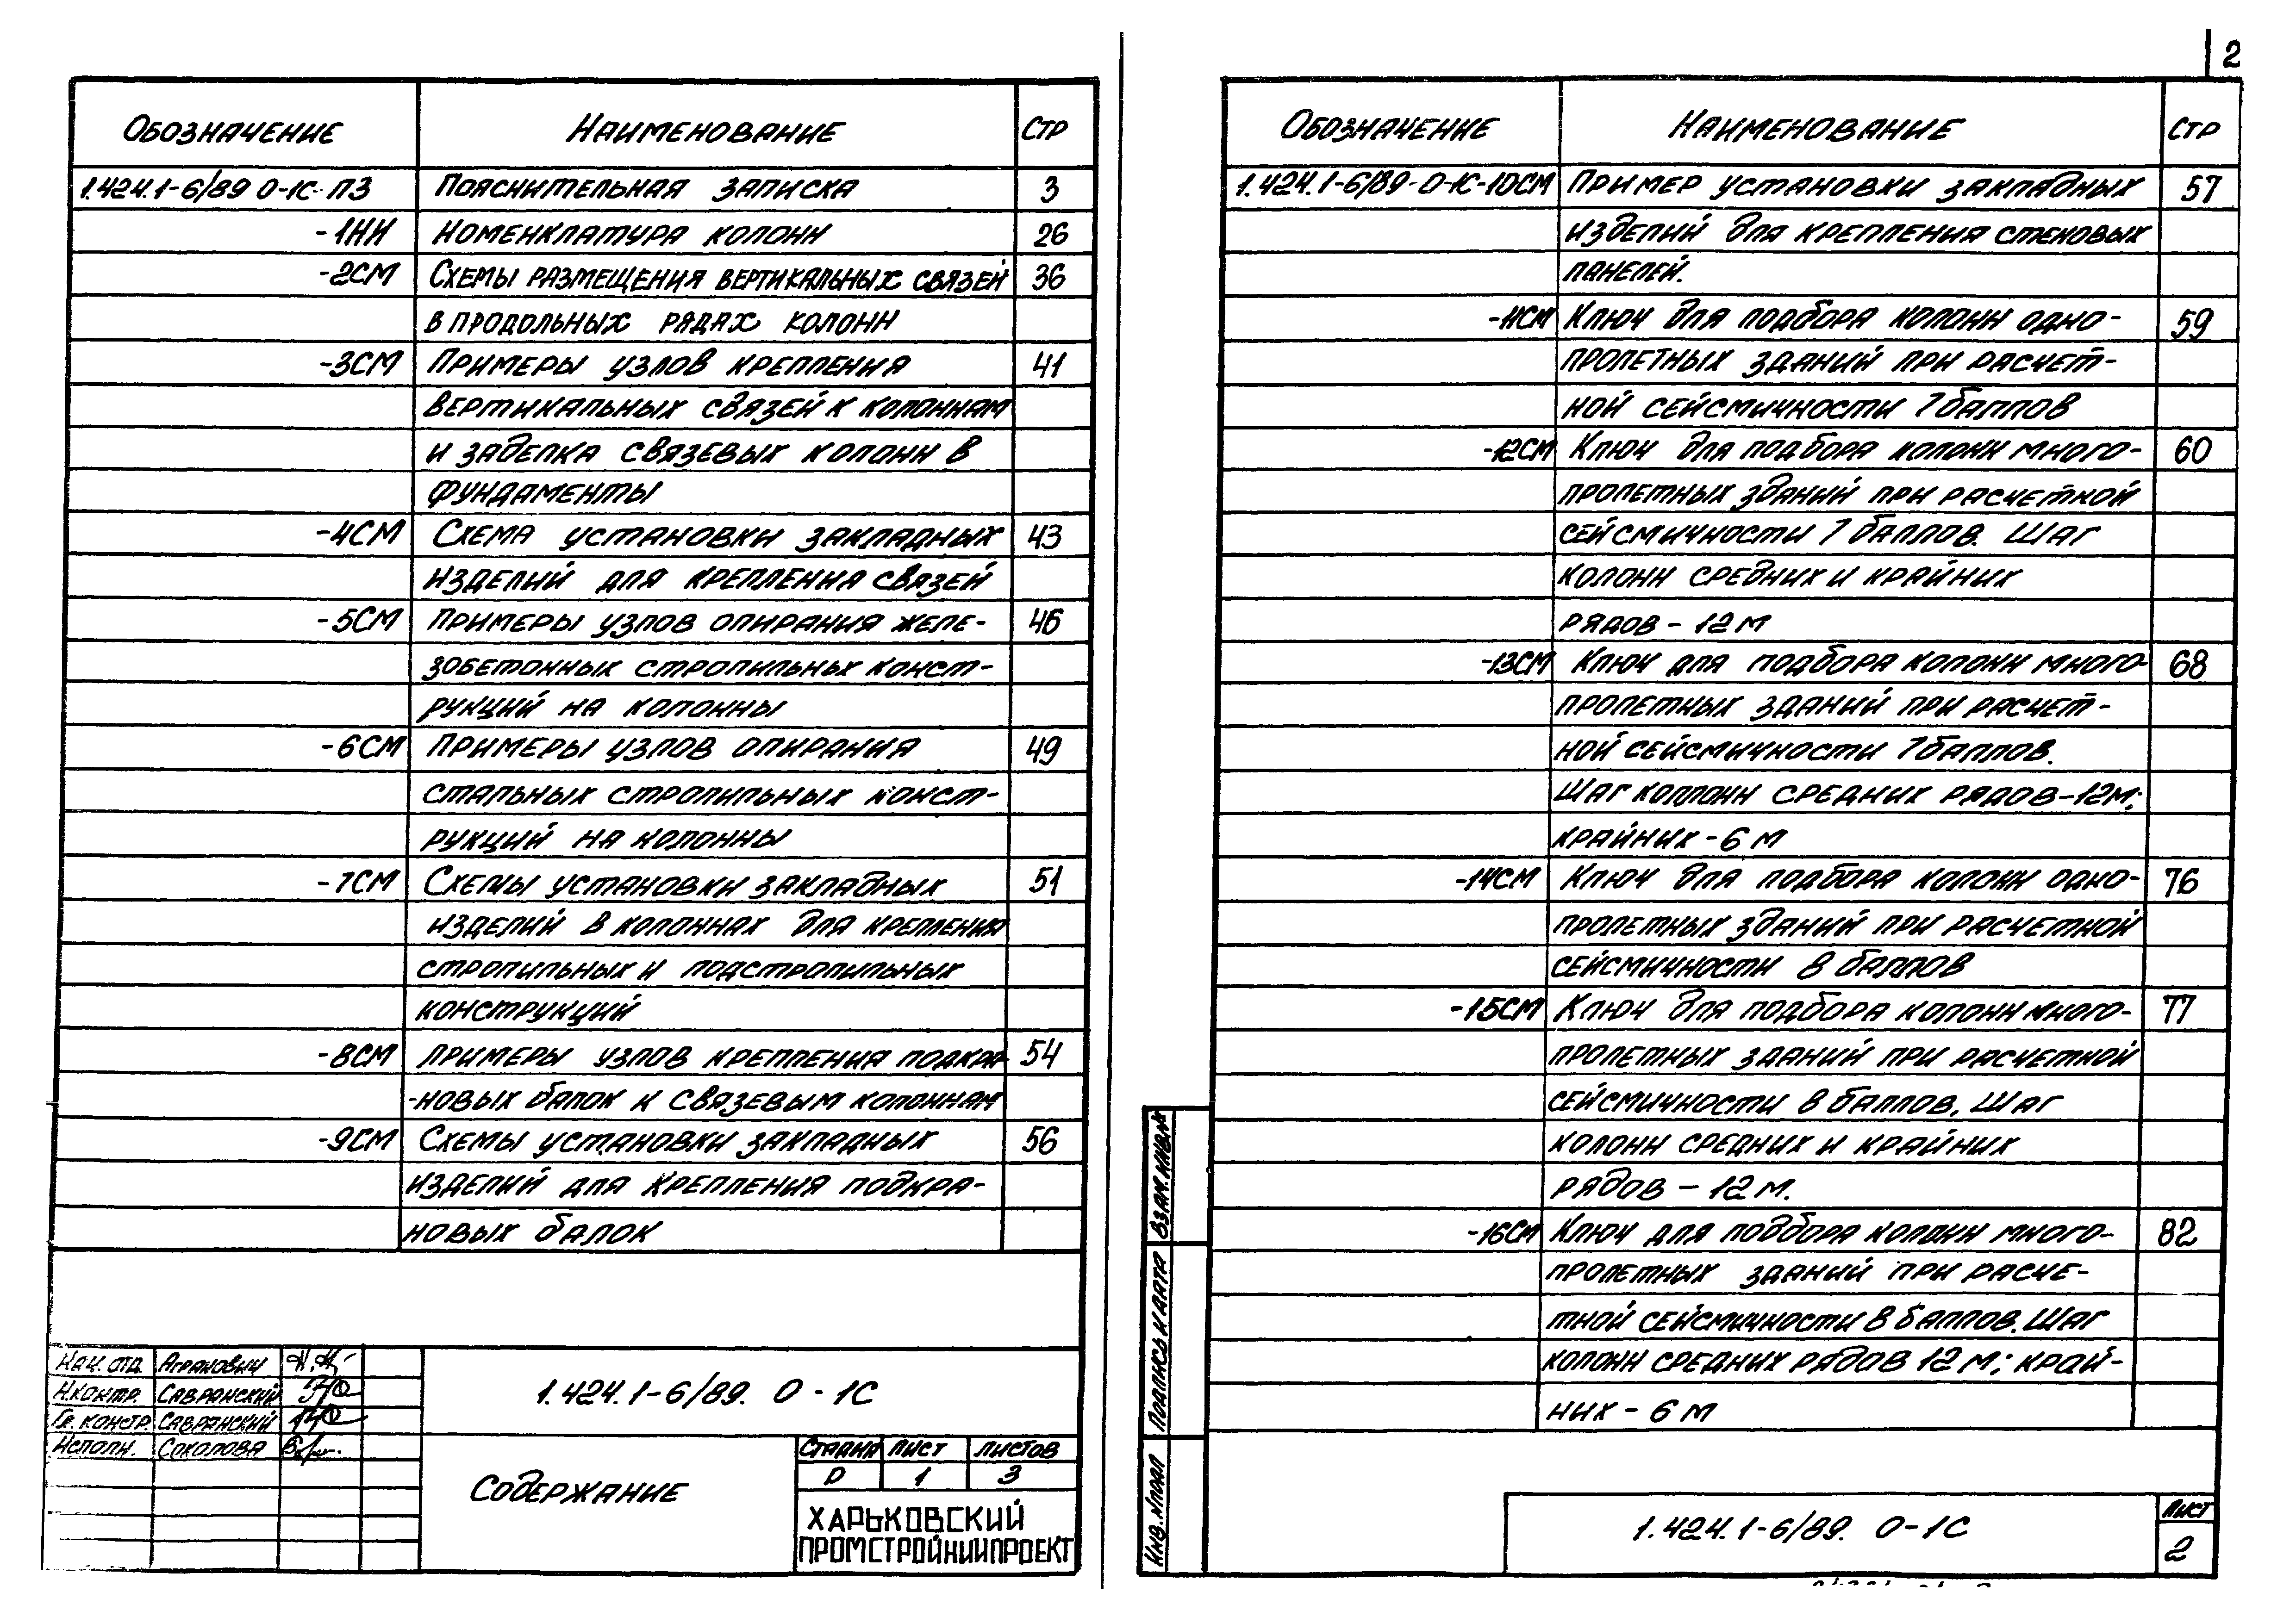 2
Обозначение Наименование Стр
1.424.1-6/89 0-1С ПЗ Пояснительная записка 3
-1НИ Номенклатура колонн 26
-2СМ Схемы размещения вертикальных связей 36
в продольных рядах колонн
-3СМ Примеры узлов крепления 41
вертикальных связей к колоннам
и заделка связевых колонн в
фундаменты
-4СМ Схема установки закладных 43
изделий для крепления связей
-5СМ Примеры узлов опирания желе-
46
зобетонных стропильных конст-
рукций на колонны
-6СМ Примеры узлов опирания 49
стальных стропильных конст-
рукций на колонны
-7СМ Схемы установки закладных 51
изделий в колоннах для крепления
стропильных и подстропильных
конструкций
-8СМ Примеры узлов крепления подкра- 54
-новых балок к связевым колоннам
-9СМ Схемы установки закладных 56
изделий для крепления подкра-
новых балок
Нач. отд. Агранович
Н.контр. Савранский
Гл. констр. Савранский
Исполн. Соколова
1.424.1-6/89. 0-1С
Содержание
Стадия Лист Листов
Р 1 3
ХАРЬКОВСКИЙ
ПРОМСТРОЙНИИПРОЕКТ
Обозначение Наименование Стр
1.424.1-6/89-0-1С-10СМ Пример установки закладных 57
изделий для крепления стеновых
панелей.
-11СМ Ключ для подбора колонн одно- 59
пролетных зданий при расчет-
ной сейсмичности 7 баллов
-12СМ Ключ для подбора колонн много- 60
пролетных зданий при расчетной
сейсмичности 7 баллов. Шаг
колонн средних и крайних
рядов - 12 м
-13СМ Ключ для подбора колонн много- 68
пролетных зданий при расчет-
ной сейсмичности 7 баллов.
Шаг колонн средних рядов-12м;
крайних - 6 м
-14СМ Ключ для подбора колонн одно- 76
пролетных зданий при расчетной
сейсмичности 8 баллов
-15СМ Ключ для подбора колонн много- 77
пролетных зданий при расчетной
сейсмичности 8 баллов. Шаг
колонн средних и крайних
рядов - 12 м.
-16СМ Ключ для подбора колонн много- 82
пролетных зданий при расче-
тной сейсмичности 8 баллов. Шаг
колонн средних рядов 12 м; край-
них - 6 м
Взам.инв.№
Подпись и дата
Инв.№ подл
1.424.1-6/89. 0-1С
Лист
2